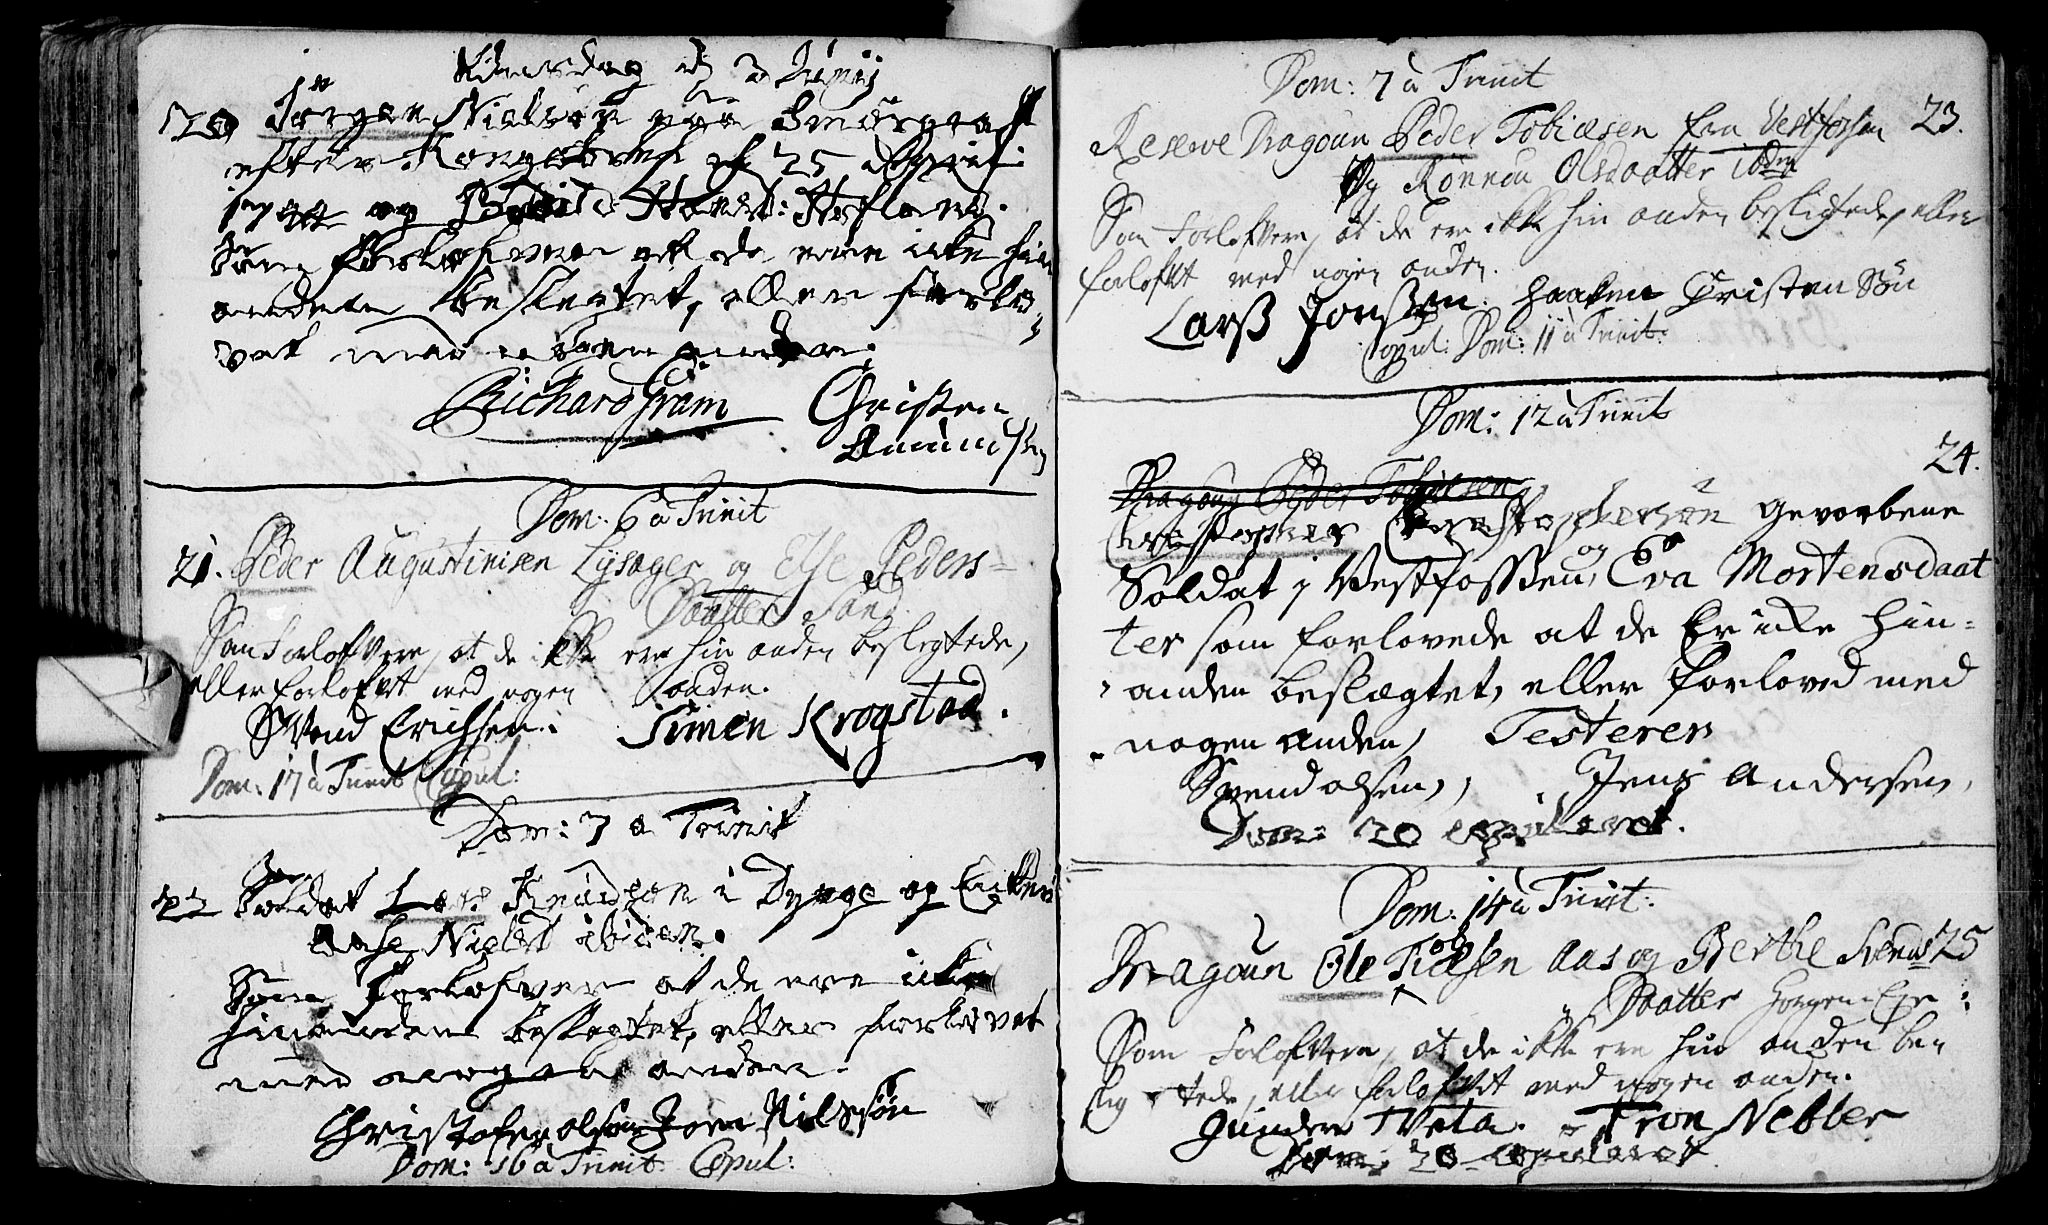 d 3 Junij
20 Jörgen Nielsen
efter Kongebref af 25 April
og
Som forlofvere at de ere icke hin
anden beslegtet, eller forlo-
vet med nogen anden.
Richard Gram Christen
Amundsen
Dom: 6 a Trinit
21. Peder Augustinisen Lysager og Else Peders-
Daatter Sand.
Som Forlofvere, at de ikke ere hin anden beslegtede,
eller forlofvet med nogen anden.
Svend Erichsen. Simen Krogstad.
Dom: 17 a Trinit Copul:
Dom: 7 a Trinit
22 Soldat Lars Knudsen i Dynge og Enken
Aase Nielsd ibidem.
Som Forlofver at de ere icke
hinanden beslegtet, eller forlovet
med nogen anden.
Christofer olsen Joen Nilssøn
Dom: 16 a Trinit Copul:
Dom: 7 a Trinit
Reserve Dragoun Peder Tobiæsen fra Vestfossen 23.
Og Rönnou Olsdaatter ibdm
Som Forlofvere, at de ere ikke hin anden besligtede, eller
forlofvet med nogen anden.
Larß Jonßen. Haaken Cristen Sön
Copul: Dom: 11 a Trinit:
Dom: 12 a Trinit
24.
Dragoun Peder Tobiæsen
Christopher Christophersön Gevorbene
Soldat i Vestfossen, og Eva Mortensdaat
ter som forlovede at de Er icke hin-
anden beslægtet, eller forloved med
nogen anden, Testerer
Svend olsen, Jens Andersen,
Dom: 20 copuleret.
Dom: 14 a Trinit:
Dragoun Ole Aas og Berthe Svends 25
Daatter
Som Forlofvere, at de ikke ere hin anden bes
lig-tede, eller forlofvet med nogen anden.
Gunder Tveta. Tron Nebler
Dom: 20 copuleret